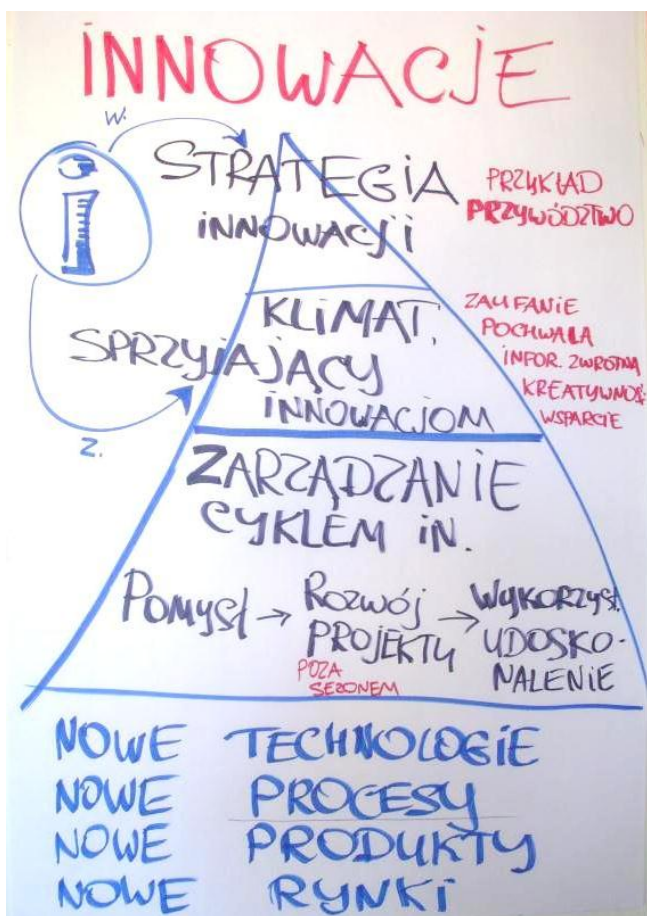 INNOWACJE
W.
i
STRATEGIA
INNOWACJI
PRZYKŁAD
PRZYWÓDZTWO
KLIMAT,
SPRZYJAJĄCY
INNOWACJOM
ZAUFANIE
POCHWAŁA
INFOR. ZWROTNA
KREATYWNOŚ
WSPARCIE
Z.
ZARZĄDZANIE
CYKLEM IN.
POMYSŁ → ROZWÓJ → WYKORZYST.
PROJEKTU UDOSKO-
POZA NALENIE
SEZONEM
NOWE TECHNOLOGIE
NOWE PROCESY
NOWE PRODUKTY
NOWE RYNKI